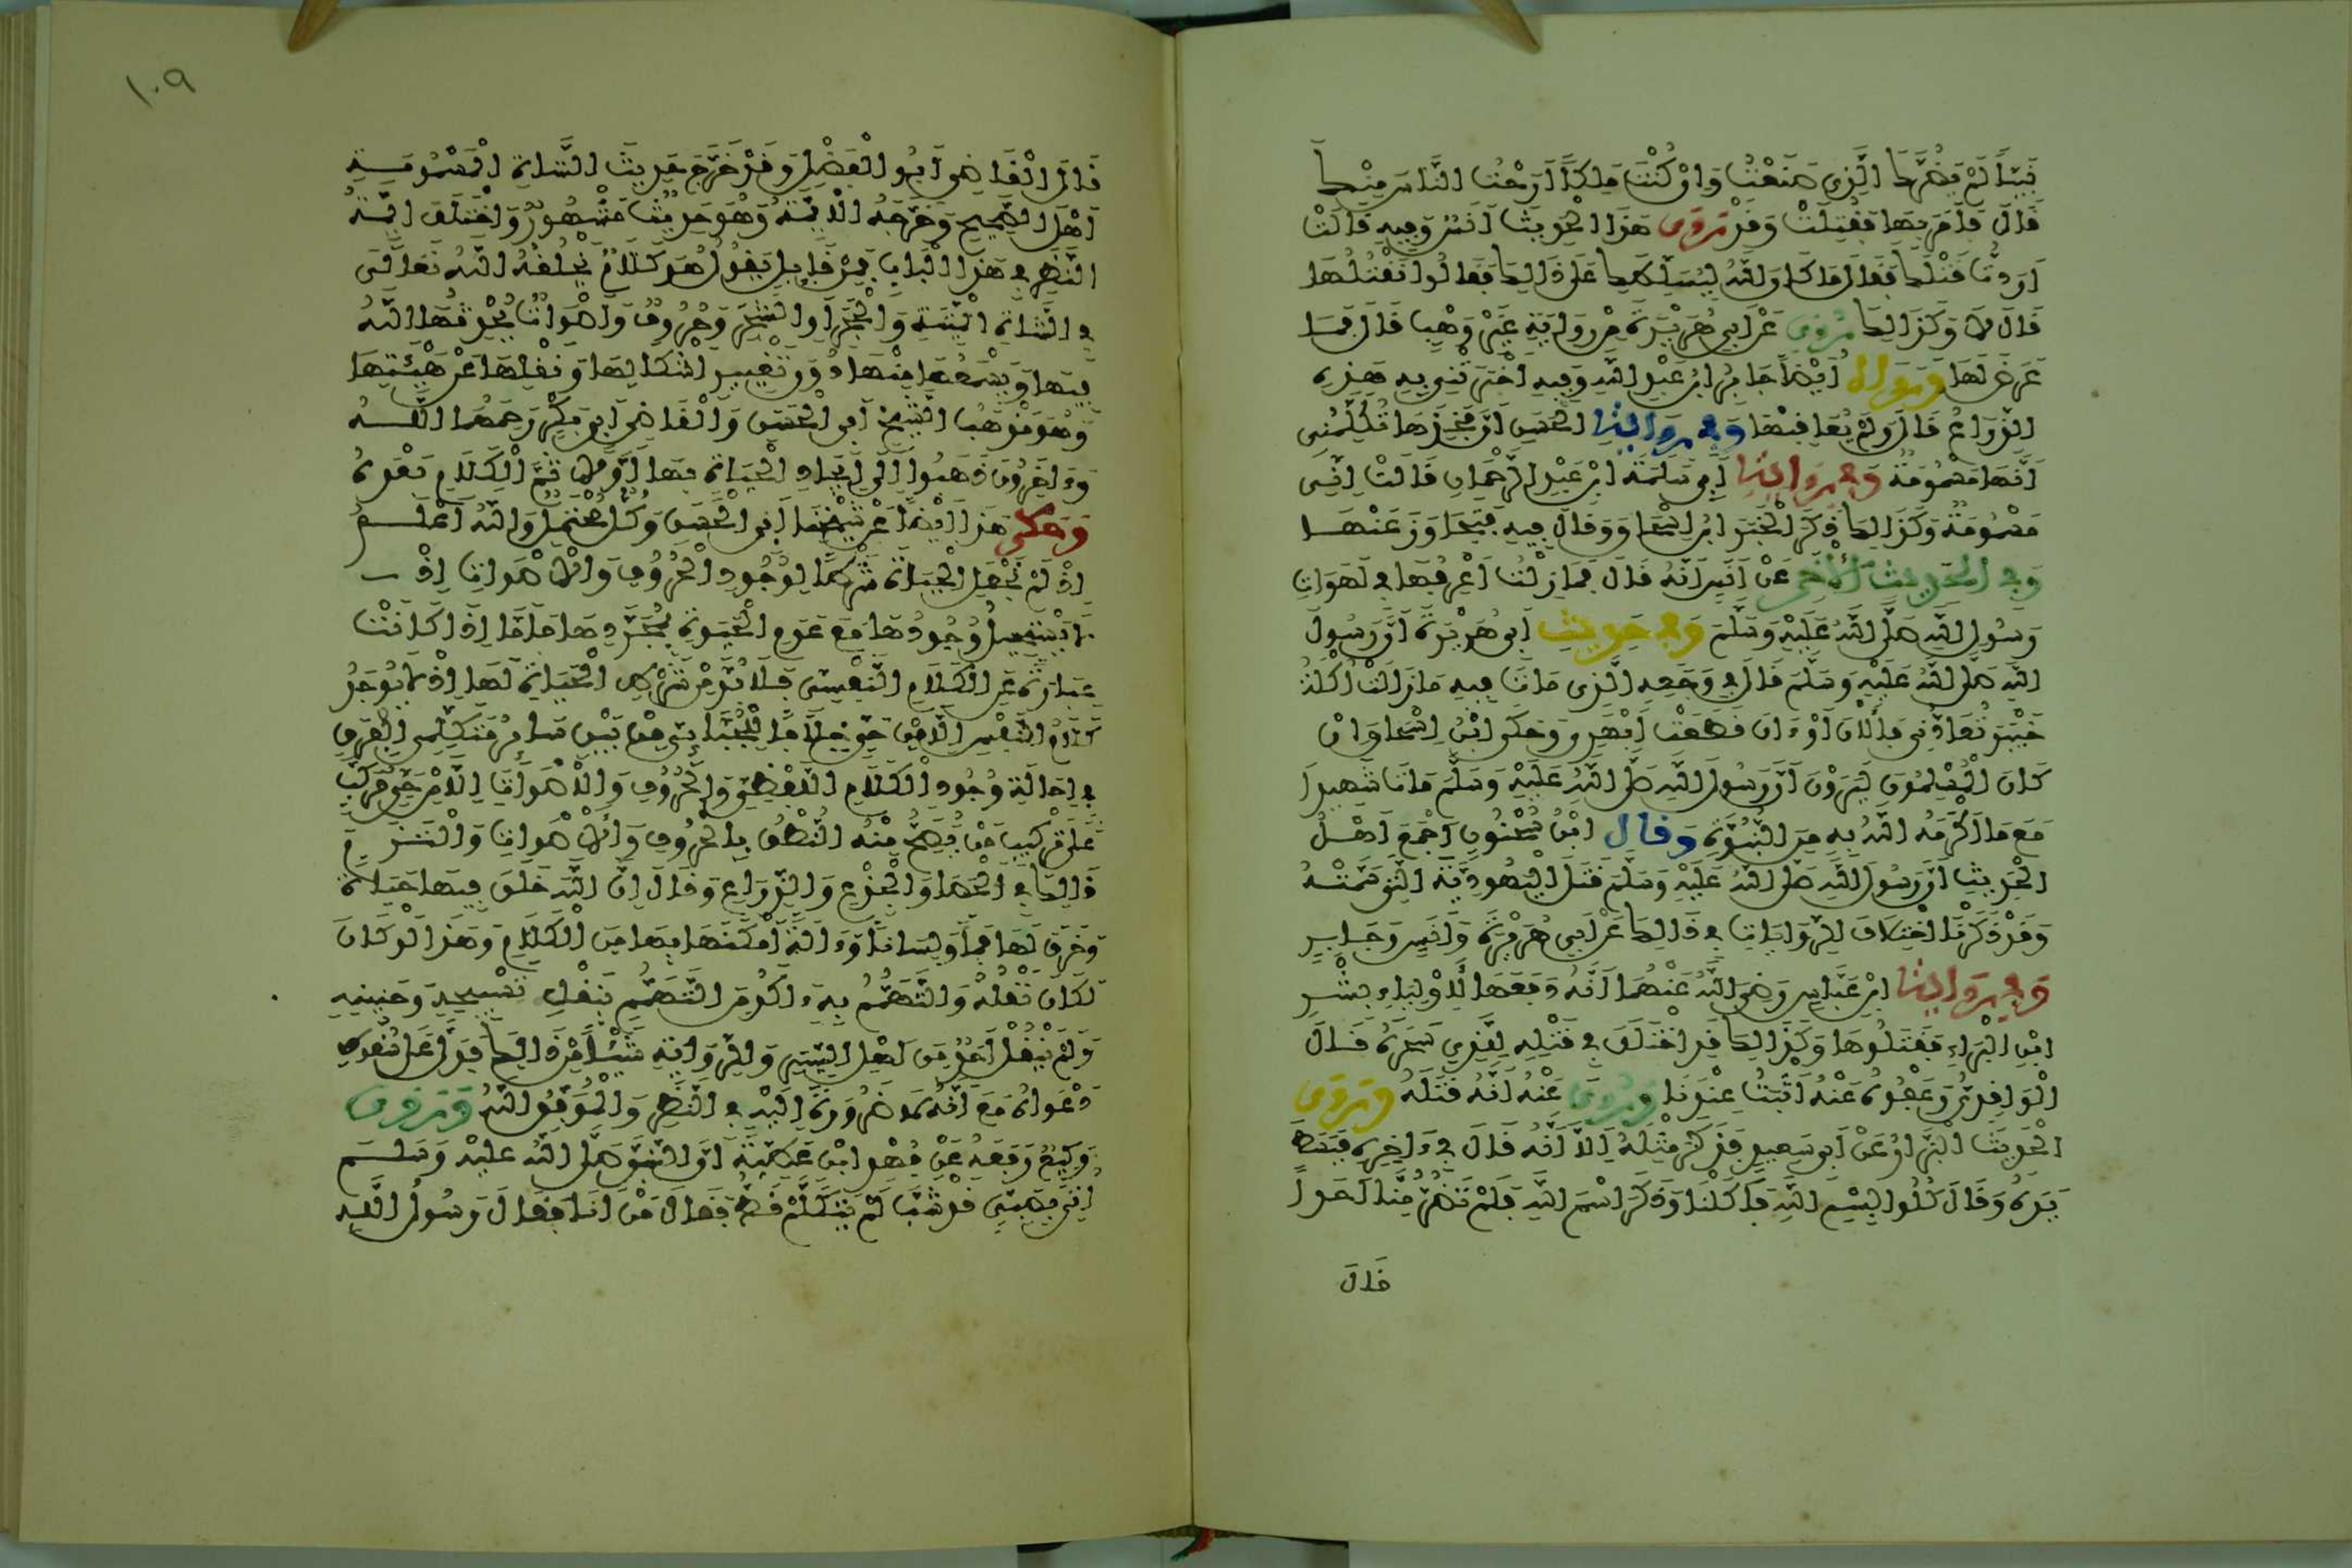 نَبِيّاً لَمْ يَضُرَّكَ الَّذِي صَنَعْتُ وَإِنْ كُنْتَ مَلِكاً أَرَحْتُ النَّاسَ مِنْكَ
قَالَ فَأَمَرَ بِهَا فَقُتِلَتْ وَقَدْ رَوَى هَذَا الْحَدِيثَ أَنَسٌ وَفِيهِ قَالَتْ
أَرَدْتُ قَتْلَكَ فَقَالَ مَا كَانَ اللَّهُ لِيُسَلِّطَكِ عَلَى ذَلِكَ فَقَالُوا نَقْتُلُهَا
قَالَ لَا وَكَذَلِكَ رُوِيَ عَنْ أَبِي هُرَيْرَةَ مِنْ رِوَايَةِ غَيْرِ وَهْبٍ قَالَ فَمَا
عَرَضَ لَهَا وَرَوَاهُ أَيْضاً جَابِرُ ابْنُ عَبْدِ اللَّهِ وَفِيهِ أَخْبَرَتْنِي بِهِ هَذِهِ
الذِّرَاعُ قَالَ وَلَمْ يُعَاقِبْهَا وَفِي رِوَايَةِ الْحَسَنِ أَنَّ فَخِذَهَا تُكَلِّمُنِي
أَنَّهَا مَسْمُومَةٌ وَفِي رِوَايَةِ أَبِي سَلَمَةَ ابْنِ عَبْدِ الرَّحْمَانِ قَالَتْ إِنِّي
مَسْمُومَةٌ وَكَذَلِكَ ذَكَرَ الْخَبَرَ ابْنُ إِسْحَاقَ وَقَالَ فِيهِ فَتَجَاوَزَ عَنْهَا
وَفِي الْحَدِيثِ الْآخَرِ عَنْ أَنَسٍ أَنَّهُ قَالَ فَمَا زِلْتُ أَعْرِفُهَا فِي لَهَوَاتِ
رَسُولِ اللَّهِ صَلَّى اللَّهُ عَلَيْهِ وَسَلَّمَ وَفِي حَدِيثِ أَبِي هُرَيْرَةَ أَنَّ رَسُولَ
اللَّهِ صَلَّى اللَّهُ عَلَيْهِ وَسَلَّمَ قَالَ فِي وَجَعِهِ الَّذِي مَاتَ فِيهِ مَا زَالَتْ أُكْلَةُ
خَيْبَرَ تُعَادُّنِي فَالْآنَ أَوَانَ قَطَعَتْ أَبْهَرِي وَحَكَى ابْنُ إِسْحَاقَ إِنْ
كَانَ الْمُسْلِمُونَ لَيَرَوْنَ أَنَّ رَسُولَ اللَّهِ صَلَّى اللَّهُ عَلَيْهِ وَسَلَّمَ مَاتَ شَهِيداً
مَعَ مَا أَكْرَمَهُ اللَّهُ بِهِ مِنَ النُّبُوَّةِ وَقَالَ ابْنُ سُحْنُونٍ أَجْمَعَ أَهْلُ
الْحَدِيثِ أَنَّ رَسُولَ اللَّهِ صَلَّى اللَّهُ عَلَيْهِ وَسَلَّمَ قَتَلَ الْيَهُودِيَّةَ الَّتِي سَمَّتْهُ
وَقَدْ ذَكَرْنَا اخْتِلَافَ الرِّوَايَاتِ فِي ذَلِكَ عَنْ أَبِي هُرَيْرَةَ وَأَنَسٍ وَجَابِرٍ
وَفِي رِوَايَةِ ابْنِ عَبَّاسٍ رَضِيَ اللَّهُ عَنْهُمَا أَنَّهُ دَفَعَهَا لِأَوْلِيَاءِ بِشْرِ
ابْنِ الْبَرَاءِ فَقَتَلُوهَا وَكَذَلِكَ قَدِ اخْتُلِفَ فِي قَتْلِهِ لِلَّذِي سَحَرَهُ قَالَ
الْوَاقِدِيُّ وَعَفْوُهُ عَنْهُ أَثْبَتُ عِنْدَنَا وَرُوِيَ عَنْهُ أَنَّهُ قَتَلَهُ وَرَوَى
الْحَدِيثَ الْبَزَّارُ عَنْ أَبِي سَعِيدٍ فَذَكَرَ مِثْلَهُ إِلَّا أَنَّهُ قَالَ فِي آخِرِهِ فَبَسَطَ
يَدَهُ وَقَالَ كُلُوا بِسْمِ اللَّهِ فَأَكَلْنَا وَذَكَرَ اسْمَ اللَّهِ فَلَمْ تَضُرَّ مِنَّا أَحَداً
قَالَ
١٠٩
قَالَ الْقَاضِي أَبُو الْفَضْلِ وَقَدْ خَرَّجَ حَدِيثَ الشَّاةِ الْمَسْمُومَةِ
أَهْلُ الصَّحِيحِ وَخَرَّجَهُ الْأَئِمَّةُ وَهُوَ حَدِيثٌ مَشْهُورٌ وَاخْتَلَفَ أَئِمَّةُ
النَّظَرِ فِي هَذَا الْبَابِ فَمِنْ قَائِلٍ يَقُولُ هُوَ كَلَامٌ يَخْلُقُهُ اللَّهُ تَعَالَى
فِي الشَّاةِ الْمَيِّتَةِ وَالْحَجَرِ أَوِ الشَّجَرِ وَحُرُوفٌ وَأَصْوَاتٌ يُحْدِثُهَا اللَّهُ
فِيهَا وَيُسْمِعُهَا مِنْهَا دُونَ تَغْيِيرِ أَشْكَالِهَا وَنَقْلِهَا عَنْ هَيْئَتِهَا
وَهُوَ مَذْهَبُ الشَّيْخِ أَبِي الْحَسَنِ وَالْقَاضِي أَبِي بَكْرٍ رَحِمَهُمَا اللَّهُ
وَآخَرُونَ ذَهَبُوا إِلَى إِيجَادِ الْحَيَاةِ بِهَا أَوَّلاً ثُمَّ الْكَلَامِ بَعْدَهُ
وَحُكِيَ هَذَا أَيْضاً عَنْ شَيْخِنَا أَبِي الْحَسَنِ وَكُلٌّ مُحْتَمَلٌ وَاللَّهُ أَعْلَمُ
إِذْ لَمْ نَجْعَلِ الْحَيَاةَ شَرْطاً لِوُجُودِ الْحُرُوفِ وَالْأَصْوَاتِ إِذْ
لَا يَسْتَحِيلُ وُجُودُهَا مَعَ عَدَمِ الْحَيَوةِ بِمُجَرَّدِهَا فَأَمَّا إِذَا كَانَتْ
عِبَارَةً عَنِ الْكَلَامِ النَّفْسِيِّ فَلَا بُدَّ مِنْ شَرْطِ الْحَيَاةِ لَهَا إِذْ لَا يُوجَدُ
كَلَامُ النَّفْسِ إِلَّا مِنْ حَيٍّ خِلَافاً لِلْجُبَّائِيِّ مِنْ بَيْنِ سَائِرِ مُتَكَلِّمِي الْفِرَقِ
فِي إِحَالَةِ وُجُودِ الْكَلَامِ اللَّفْظِيِّ وَالْحُرُوفِ وَالْأَصْوَاتِ إِلَّا مِنْ حَيٍّ مُرَكَّبٍ
عَلَى تَرْكِيبِ مَنْ يَصِحُّ مِنْهُ النُّطْقُ بِالْحُرُوفِ وَالْأَصْوَاتِ وَالْتَزَمَ
ذَلِكَ فِي الْحَصَا وَالْجِذْعِ وَالذِّرَاعِ وَقَالَ إِنَّ اللَّهَ خَلَقَ فِيهَا حَيَاةً
وَخَرَقَ لَهَا فَماً وَلِسَاناً وَآلَةً أَمْكَنَهَا بِهَا مِنَ الْكَلَامِ وَهَذَا لَوْ كَانَ
لَكَانَ نَقْلُهُ وَالتَّهَمُّمُ بِهِ آكَدَ مِنَ التَّهَمُّمِ بِنَقْلِ تَسْبِيحِهِ وَحَنِينِهِ
وَلَمْ يَنْقُلْ أَحَدٌ مِنْ أَهْلِ السِّيَرِ وَالرِّوَايَةِ شَيْئاً مِنْ ذَلِكَ فَدَلَّ عَلَى سُقُوطِ
دَعْوَاهُ مَعَ أَنَّهُ لَا ضَرُورَةَ إِلَيْهِ فِي النَّظَرِ وَالْمُوَفِّقُ اللَّهُ وَرَوَى
وَكِيعٌ رَفَعَهُ عَنْ فَهْدِ ابْنِ عَطِيَّةَ أَنَّ النَّبِيَّ صَلَّى اللَّهُ عَلَيْهِ وَسَلَّمَ
أُتِيَ بِصَبِيٍّ قَدْ شَبَّ لَمْ يَتَكَلَّمْ قَطُّ فَقَالَ مَنْ أَنَا فَقَالَ رَسُولُ اللَّهِ